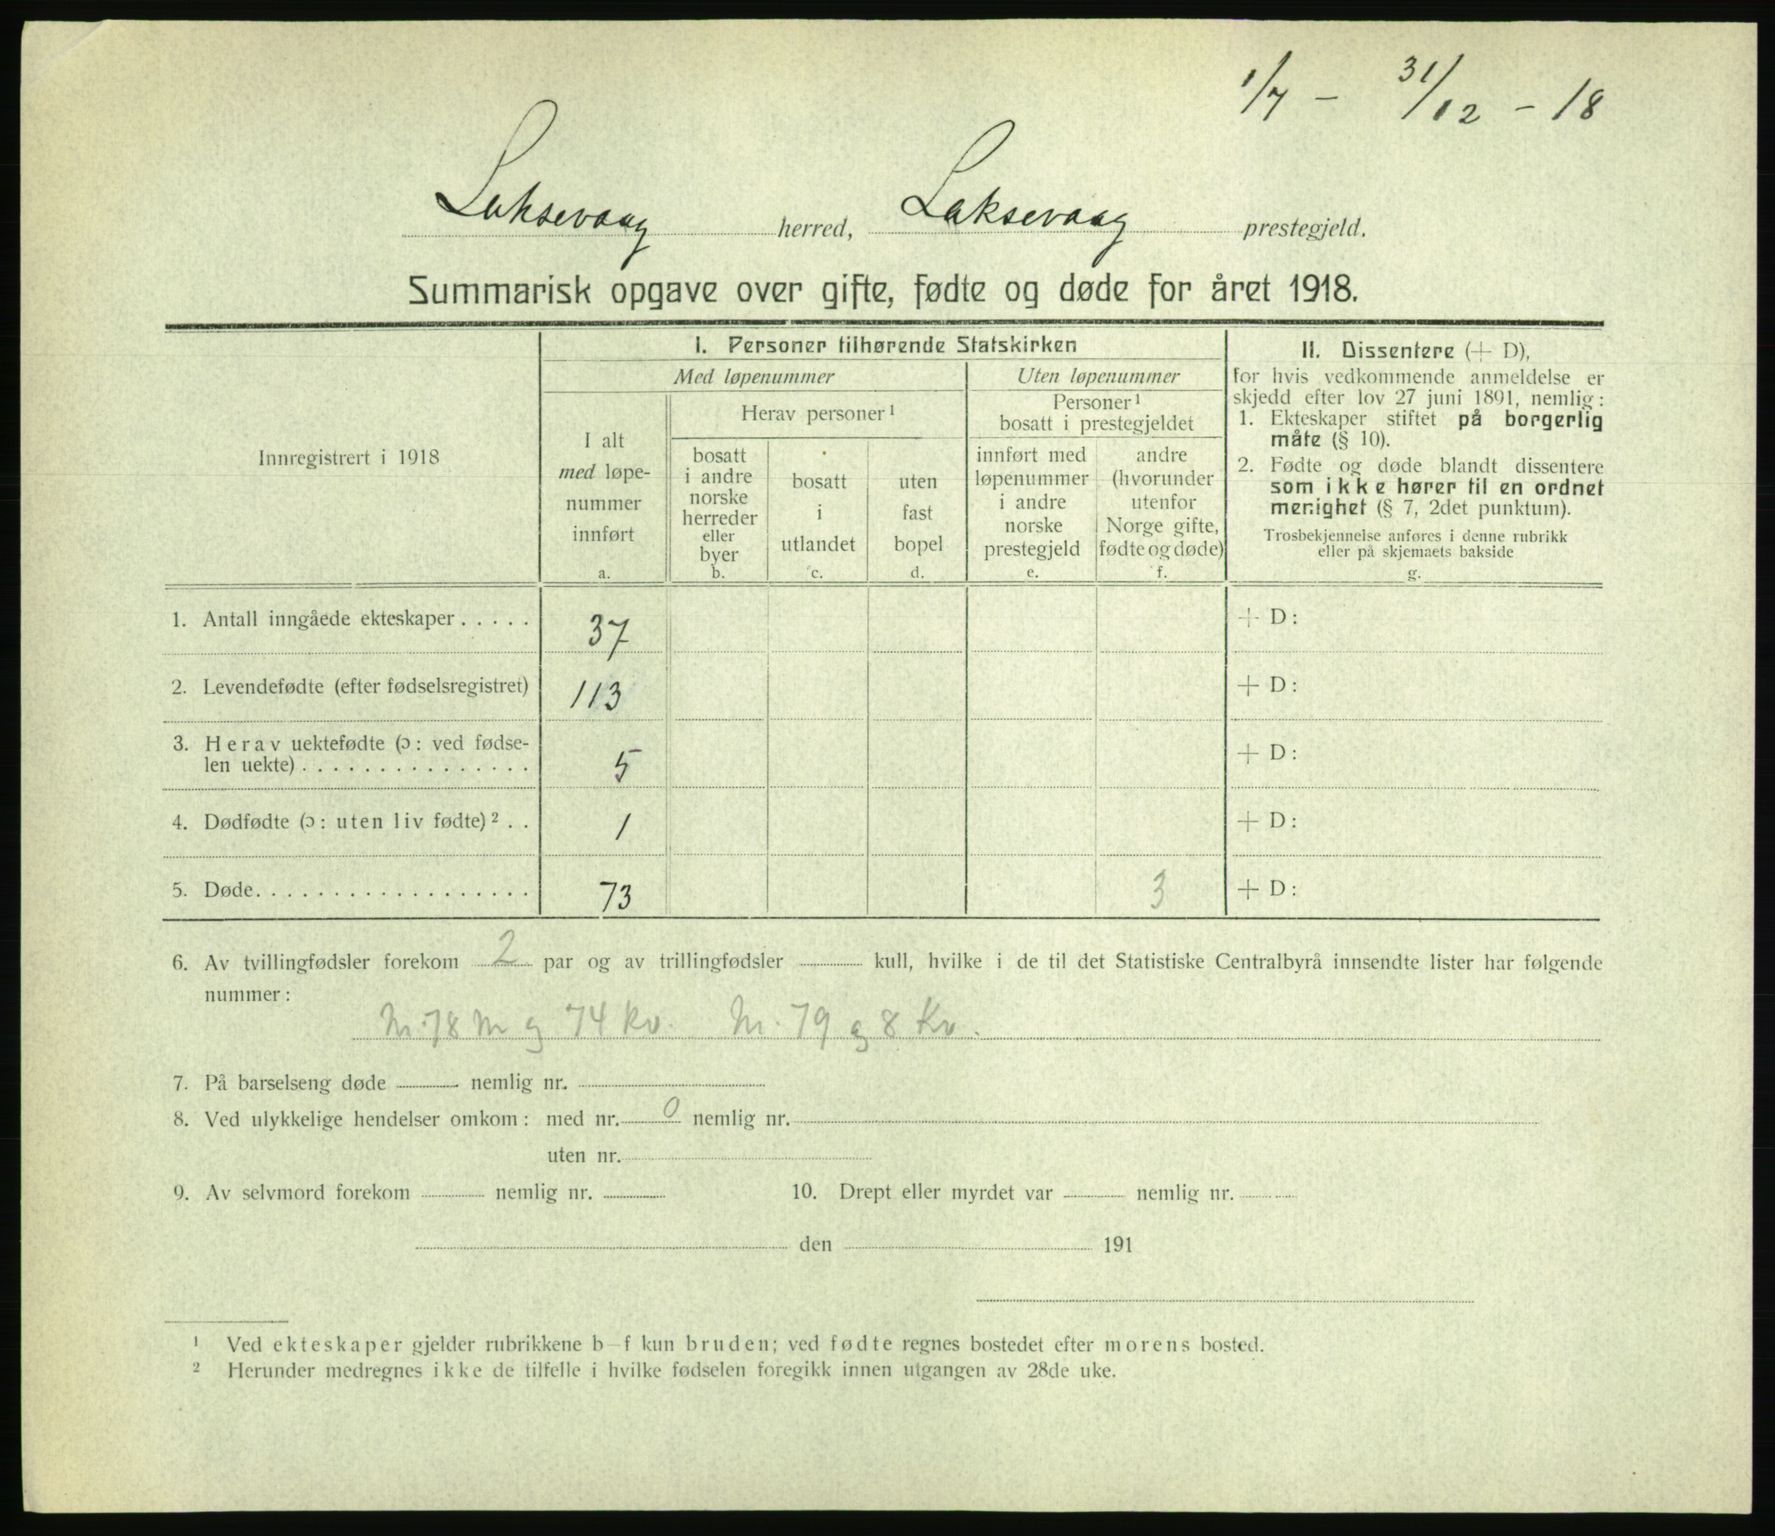 1/7 – 31/12 – 18
Laksevaag herred, Laksevaag prestegjeld.
Summarisk opgave over gifte, fødte og døde for året 1918.
Innregistrert i 1918
I. Personer tilhørende Statskirken
Med løpenummer
Uten løpenummer
I alt
med løpe-
nummer
innført
a.
Herav personer 1
bosatt
i andre
norske
herreder
eller
byer
b.
bosatt
i
utlandet
c.
uten
fast
bopel
d.
Personer 1
bosatt i prestegjeldet
innført med
løpenummer
i andre
norske
prestegjeld
e.
andre
(hvorunder
utenfor
Norge gifte,
fødte og døde)
f.
II. Dissentere (+ D),
for hvis vedkommende anmeldelse er
skjedd efter lov 27 juni 1891, nemlig:
1. Ekteskaper stiftet på borgerlig
måte (§ 10).
2. Fødte og døde blandt dissentere
som ikke hører til en ordnet
menighet (§ 7, 2det punktum).
Trosbekjennelse anføres i denne rubrikk
eller på skjemaets bakside
g.
1. Antall inngåede ekteskaper..... 37 + D:
2. Levendefødte (efter fødselsregistret) 113 + D:
3. Herav uektefødte (ɔ: ved fødse-
len uekte)............... 5 + D:
4. Dødfødte (ɔ: uten liv fødte) 2.. 1 + D:
5. Døde.................. 73 3 + D:
6. Av tvillingfødsler forekom 2 par og av trillingfødsler kull, hvilke i de til det Statistiske Centralbyrå innsendte lister har følgende
nummer:
Nr. 78 M og 74 Kv. Nr. 79 og 8 Kv.
7. På barselseng døde nemlig nr.
8. Ved ulykkelige hendelser omkom: med nr. 0 nemlig nr.
uten nr.
9. Av selvmord forekom nemlig nr. 10. Drept eller myrdet var nemlig nr.
den 191
1 Ved ekteskaper gjelder rubrikkene b–f kun bruden; ved fødte regnes bostedet efter morens bosted.
2 Herunder medregnes ikke de tilfelle i hvilke fødselen foregikk innen utgangen av 28de uke.